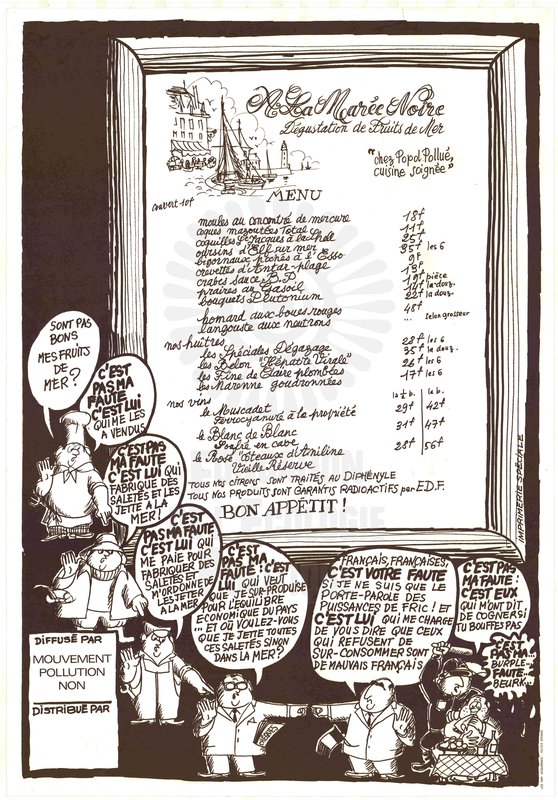 A La Marée Noire
Dégustation de Fruits de Mer
"chez Popol Pollué,
cuisine soignée"
MENU
couvert 10f
moules au concentré de mercure 18f
coques mazoutées Total 11f
coquilles St Jacques à l'arsenic 25f
oursins d'Elf sur mer 35f les 6
bigorneaux pêchés à l'Esso 9f
crevettes d'Antar-plage 13f
crabs sauce B.P 19f pièce
praires au Gasoil 14f la douz.
bouquets Plutonium 22f la douz.
homard aux boues rouges 48f
langouste aux neutrons ... selon grosseur
nos huîtres
les Spéciales Dégazage 28f les 6
les Belon "Hépatite Virale" 35f la douz.
les Fine de Claire plombées 26f les 6
les Marenne goudronnées 17f les 6
nos vins la ½ b. la b.
le Muscadet 29f 42f
Ferrocyanuré à la propriété
le Blanc de Blanc 31f 47f
Soufré en cave
le Rosé "Coteaux d'Aniline 28f 56f
Vieille Réserve
TOUS NOS CITRONS SONT TRAITÉS AU DIPHÉNYLE
TOUS NOS PRODUITS SONT GARANTIS RADIOACTIFS par E.D.F.
BON APPÉTIT !
IMPRIMERIE SPÉCIALE
SONT PAS
BONS
MES FRUITS
DE
MER ?
C'EST
PAS MA
FAUTE
C'EST LUI
QUI ME LES
A VENDUS
C'EST PAS
MA FAUTE
C'EST LUI QUI
FABRIQUE DES
SALETÉS ET LES
JETTE A LA
MER !
C'EST
PAS MA FAUTE
C'EST LUI QUI
ME PAIE POUR
FABRIQUER DES
SALETÉS ET
M'ORDONNE DE
LES JETER
A LA MER
C'EST
PAS MA
FAUTE :
C'EST
LUI QUI VEUT
QUE JE SUR-PRODUISE
POUR L'ÉQUILIBRE
ECONOMIQUE DU PAYS
... ET OÙ VOULEZ-VOUS
QUE JE JETTE TOUTES
CES SALETÉS SINON
DANS LA MER ?
FRANÇAIS, FRANÇAISES,
C'EST VOTRE FAUTE
SI JE NE SUIS QUE LE
PORTE-PAROLE DES
PUISSANCES DE FRIC ! ET
C'EST LUI QUI ME CHARGE
DE VOUS DIRE QUE CEUX
QUI REFUSENT DE
SUR-CONSOMMER SONT
DE MAUVAIS FRANÇAIS
C'EST PAS
MA FAUTE :
C'EST EUX
QUI M'ONT DIT
DE COGNER SI
TU BOUFFES PAS
C'EST
PAS MA...
BURPLE..
FAUTE..
BEURK..
DIFFUSÉ PAR
MOUVEMENT
POLLUTION
NON
DISTRIBUÉ PAR